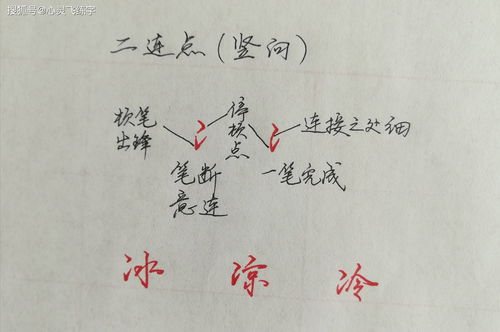 搜狐号@心灵飞练字
二连点（竖向）
顿笔
出锋
停
顿
点
连接之处细
笔断
意连
一笔完成
冰 凉 冷